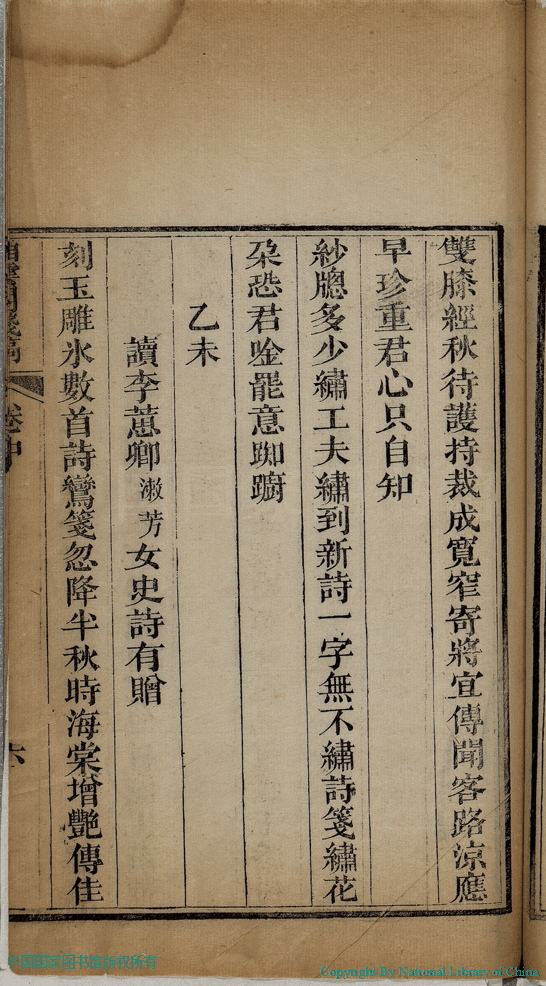 雙膝經秋待護持裁成寬窄寄將宜傳聞客路涼應
早珍重君心只自知
紗牕多少繡工夫繡到新詩一字無不繡詩箋繡花
朶恐君唫罷意踟躕
乙未
讀李蕙卿漱芳女史詩有贈
刻玉雕氷數首詩鸞箋忽降半秋時海棠增艷傳佳
卷中
六
中国国家图书馆版权所有
Copyright By National Library of China